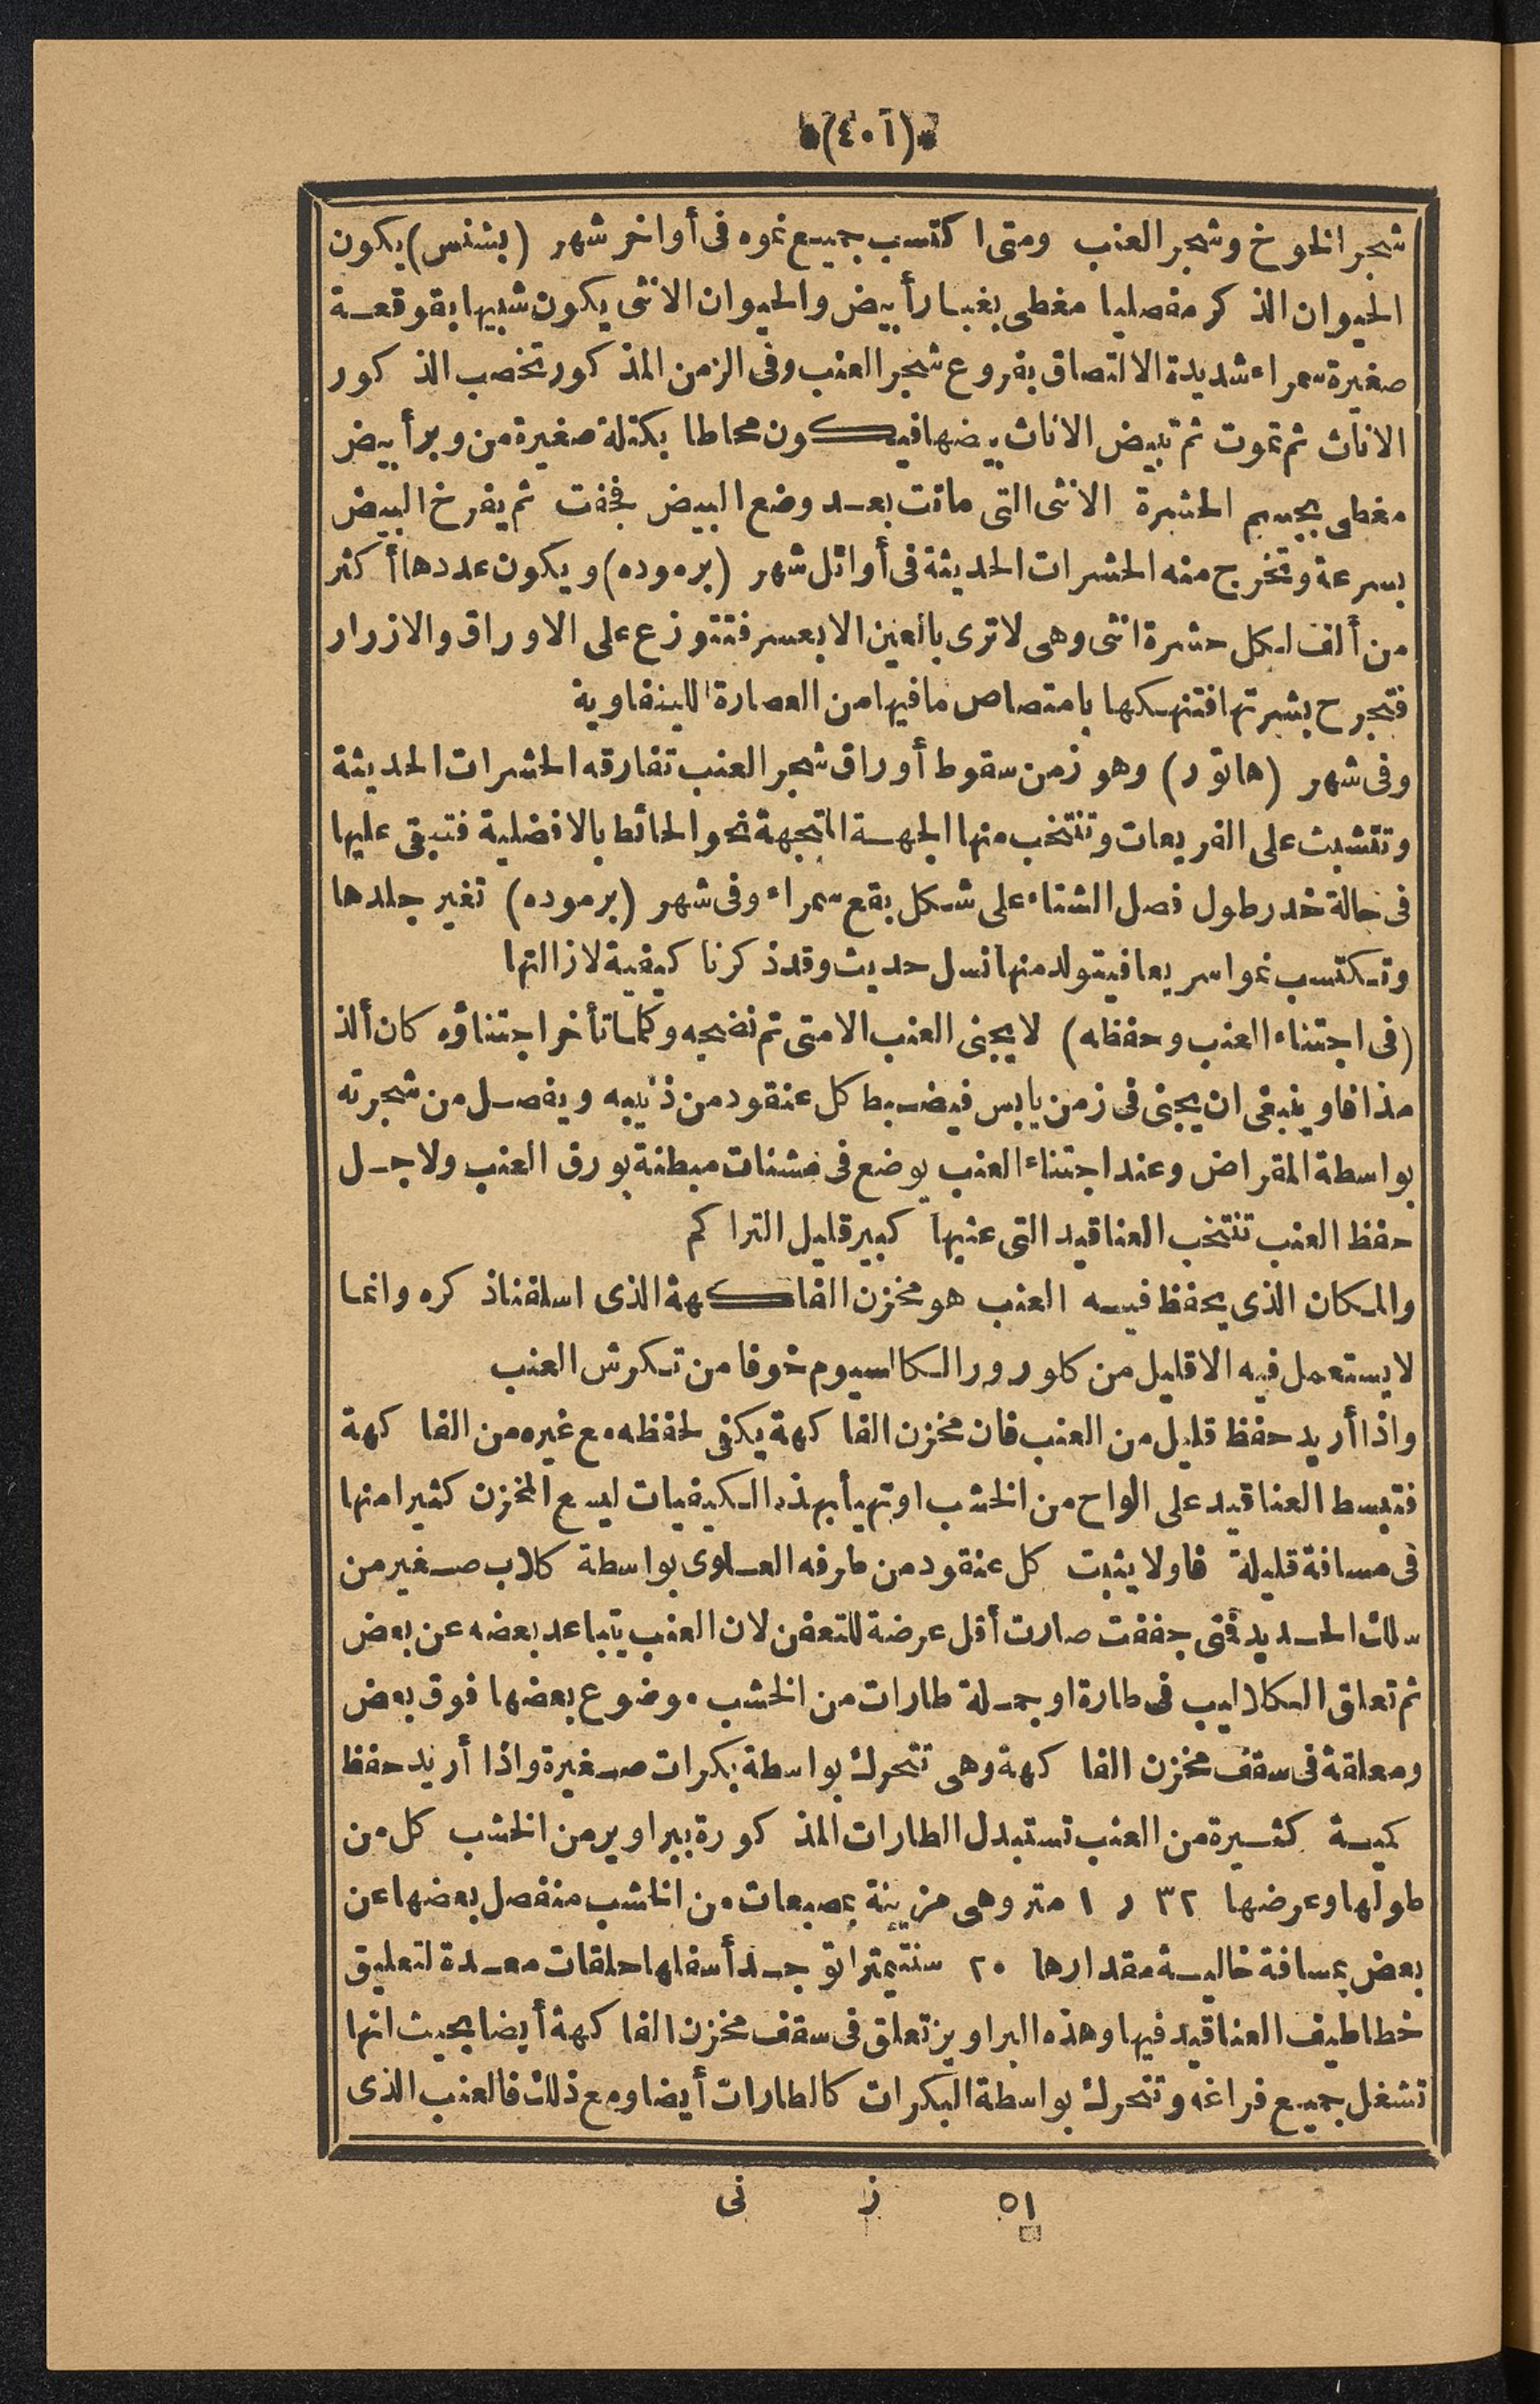 *(٤٠١)*
شجر الخوخ وشجر العنب ومتى اكتسب جميع نموه فى أواخر شهر (بشنس) يكون
الحيوان الذكر مفصليا مغطى بغبار أبيض والحيوان الانثى يكون شبيها بقوقعة
صغيرة سمراء شديدة الالتصاق بفروع شجر العنب وفى الزمن المذكور تخصب الذكور
الاناث ثم تموت ثم تبيض الاناث بيضها فيكون محاطا بكتلة صغيرة من وبر أبيض
مغطى بجسم الحشرة الانثى التى ماتت بعد وضع البيض فجفت ثم يفرخ البيض
بسرعة وتخرج منه الحشرات الحديثة فى أوائل شهر (برموده) ويكون عددها أكثر
من ألف لكل حشرة انثى وهى لا ترى بالعين الا بعسر فتتوزع على الاوراق والازرار
فتجرح بشرتها فتنهكها بامتصاص ما فيها من العصارة اللينفاوية
وفى شهر (هاتور) وهو زمن سقوط أوراق شجر العنب تفارقه الحشرات الحديثة
وتتشبث على الفريعات وتنتخب منها الجهة المتجهة نحو الحائط بالافضلية فتبقى عليها
فى حالة خدر طول فصل الشتاء على شكل بقع سمراء وفى شهر (برموده) تغير جلدها
وتكتسب نموا سريعا فيتولد منها نسل حديث وقد ذكرنا كيفية لازالتها
(فى اجتناء العنب وحفظه) لا يجنى العنب الا متى تم نضجه وكلما تأخر اجتناؤه كان ألذ
مذاقا وينبغى ان يجنى فى زمن يابس فيضبط كل عنقود من ذنيبه ويفصل من شجرته
بواسطة المقراض وعند اجتناء العنب يوضع فى مشنات مبطنة بورق العنب ولاجل
حفظ العنب تنتخب العناقيد التى عنبها كبير قليل التراكم
والمكان الذى يحفظ فيه العنب هو مخزن الفاكهة الذى اسلفنا ذكره وانما
لا يستعمل فيه الا قليل من كلورور الكالسيوم خوفا من تكرش العنب
واذا أريد حفظ قليل من العنب فان مخزن الفاكهة يكفى لحفظه مع غيره من الفاكهة
فتبسط العناقيد على الواح من الخشب او تهيأ بهذه الكيفيات ليسع المخزن كثيرا منها
فى مسافة قليلة فاولا يثبت كل عنقود من طرفه العلوى بواسطة كلاب صغير من
سلك الحديد فتى جففت صارت أقل عرضة للتعفن لان العنب يتباعد بعضه عن بعض
ثم تعلق الكلاليب فى طارة او جملة طارات من الخشب موضوع بعضها فوق بعض
ومعلقة فى سقف مخزن الفاكهة وهى تتحرك بواسطة بكرات صغيرة واذا أريد حفظ
كمية كثيرة من العنب تستبدل الطارات المذكورة ببراويز من الخشب كل من
طولها وعرضها ٣٢ ر ١ متر وهى مزينة بمصبعات من الخشب منفصل بعضها عن
بعض بمسافة خالية مقدارها ٢٠ سنتيمترا توجد أسفلها حلقات معدة لتعليق
خطاطيف العناقيد فيها وهذه البراويز تعلق فى سقف مخزن الفاكهة أيضا بحيث انها
تشغل جميع فراغه وتتحرك بواسطة البكرات كالطارات أيضا ومع ذلك فالعنب الذى
٥١ ز نى